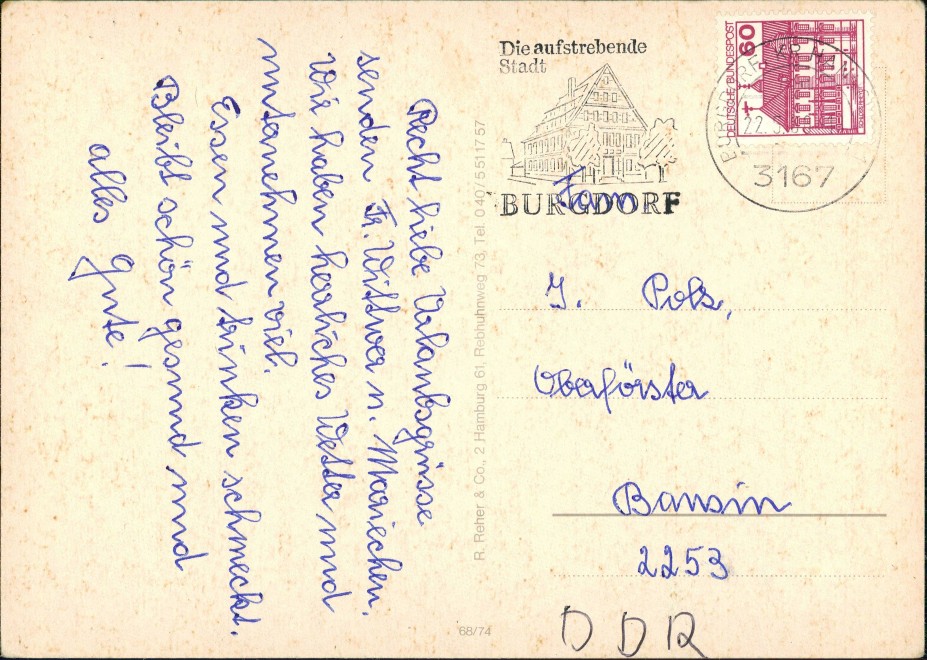 Recht liebe Urlaubsgrüsse
senden Fr. Wittwer u. Mariechen.
Wir haben herrliches Wetter und
unternehmen viel.
Essen und trinken schmeckt.
Bleibt schön gesund und
alles Gute!
R. Reher & Co., 2 Hamburg 61, Rebhuhnweg 73, Tel. 040/5 511757
68/74
Die aufstrebende
Stadt
BURGDORF
DEUTSCHE BUNDESPOST
60
3167
Fam
J. Polz,
Oberförster
Bansin
2253
DDR